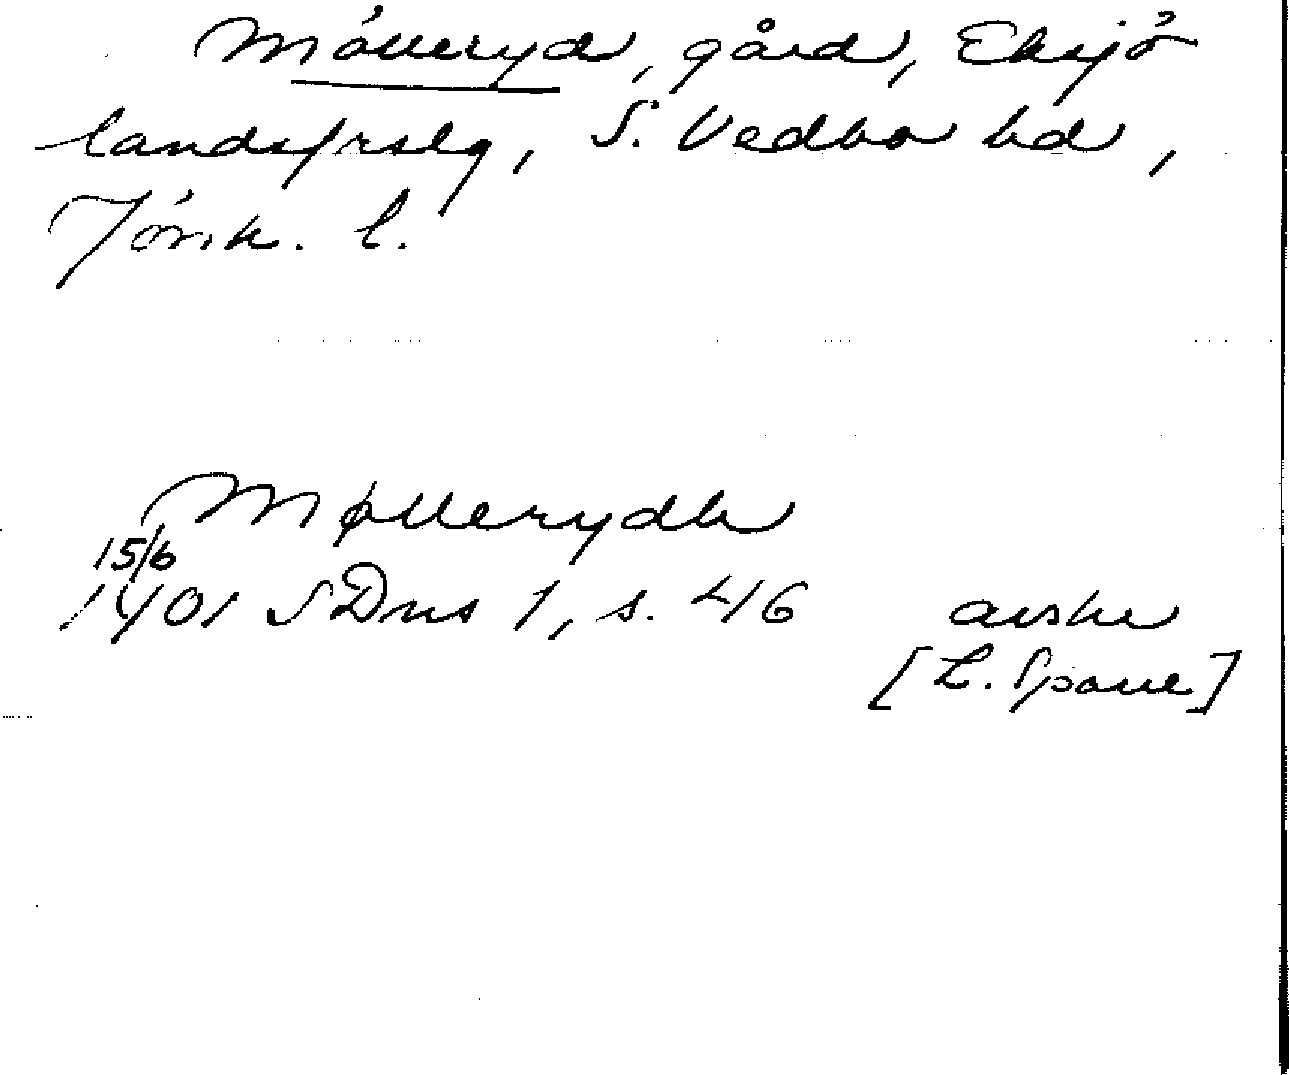 Mölleryd, gård, Eksjö
landsförslg, S. Vedbo hd,
Jönk. l.
Møllerydh
15/6
1401 SDns 1, s. 46 avskr
[L. Spane]